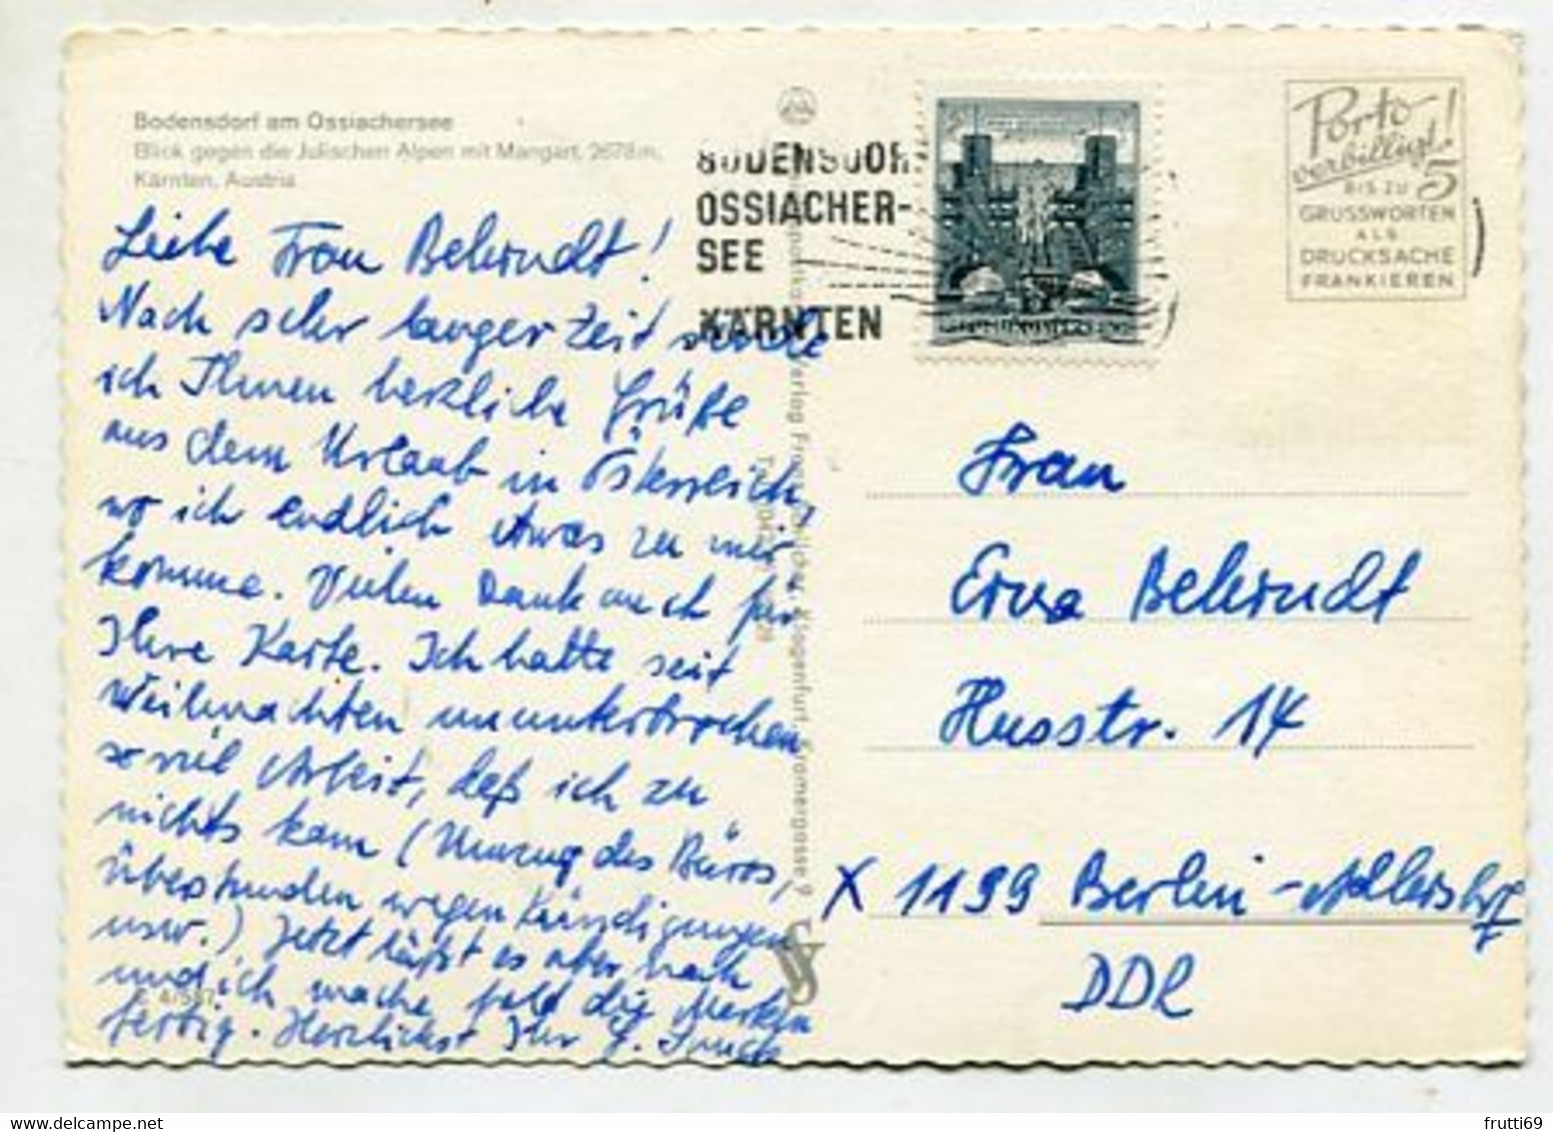 Bodensdorf am Ossiachersee
Blick gegen die Julischen Alpen mit Mangart, 2678 m,
Kärnten, Austria
Liebe Frau Behrndt!
Nach sehr langer Zeit sende
ich Ihnen herzliche Grüße
aus dem Urlaub in Österreich,
wo ich endlich etwas zu mir
komme. Vielen Dank auch für
Ihre Karte. Ich hatte seit
Weihnachten ununterbrochen
so viel Arbeit, daß ich zu
nichts kam (Umzug des Büros,
Überstunden wegen Kündigungen
usw.) Jetzt läßt es aber nach
und ich mache bald die Marken
fertig. Herzlichst Ihr
BODENSDORF
OSSIACHER-
SEE
KÄRNTEN
Porto
verbilligt!
BIS ZU 5
GRUSSWORTEN
ALS
DRUCKSACHE
FRANKIEREN
Verlag Franz Schilcher, Klagenfurt, Kromergasse 9
Frau
Erna Behrndt
Husstr. 14
X 1199 Berlin-Adlershof
DDR
frutti69